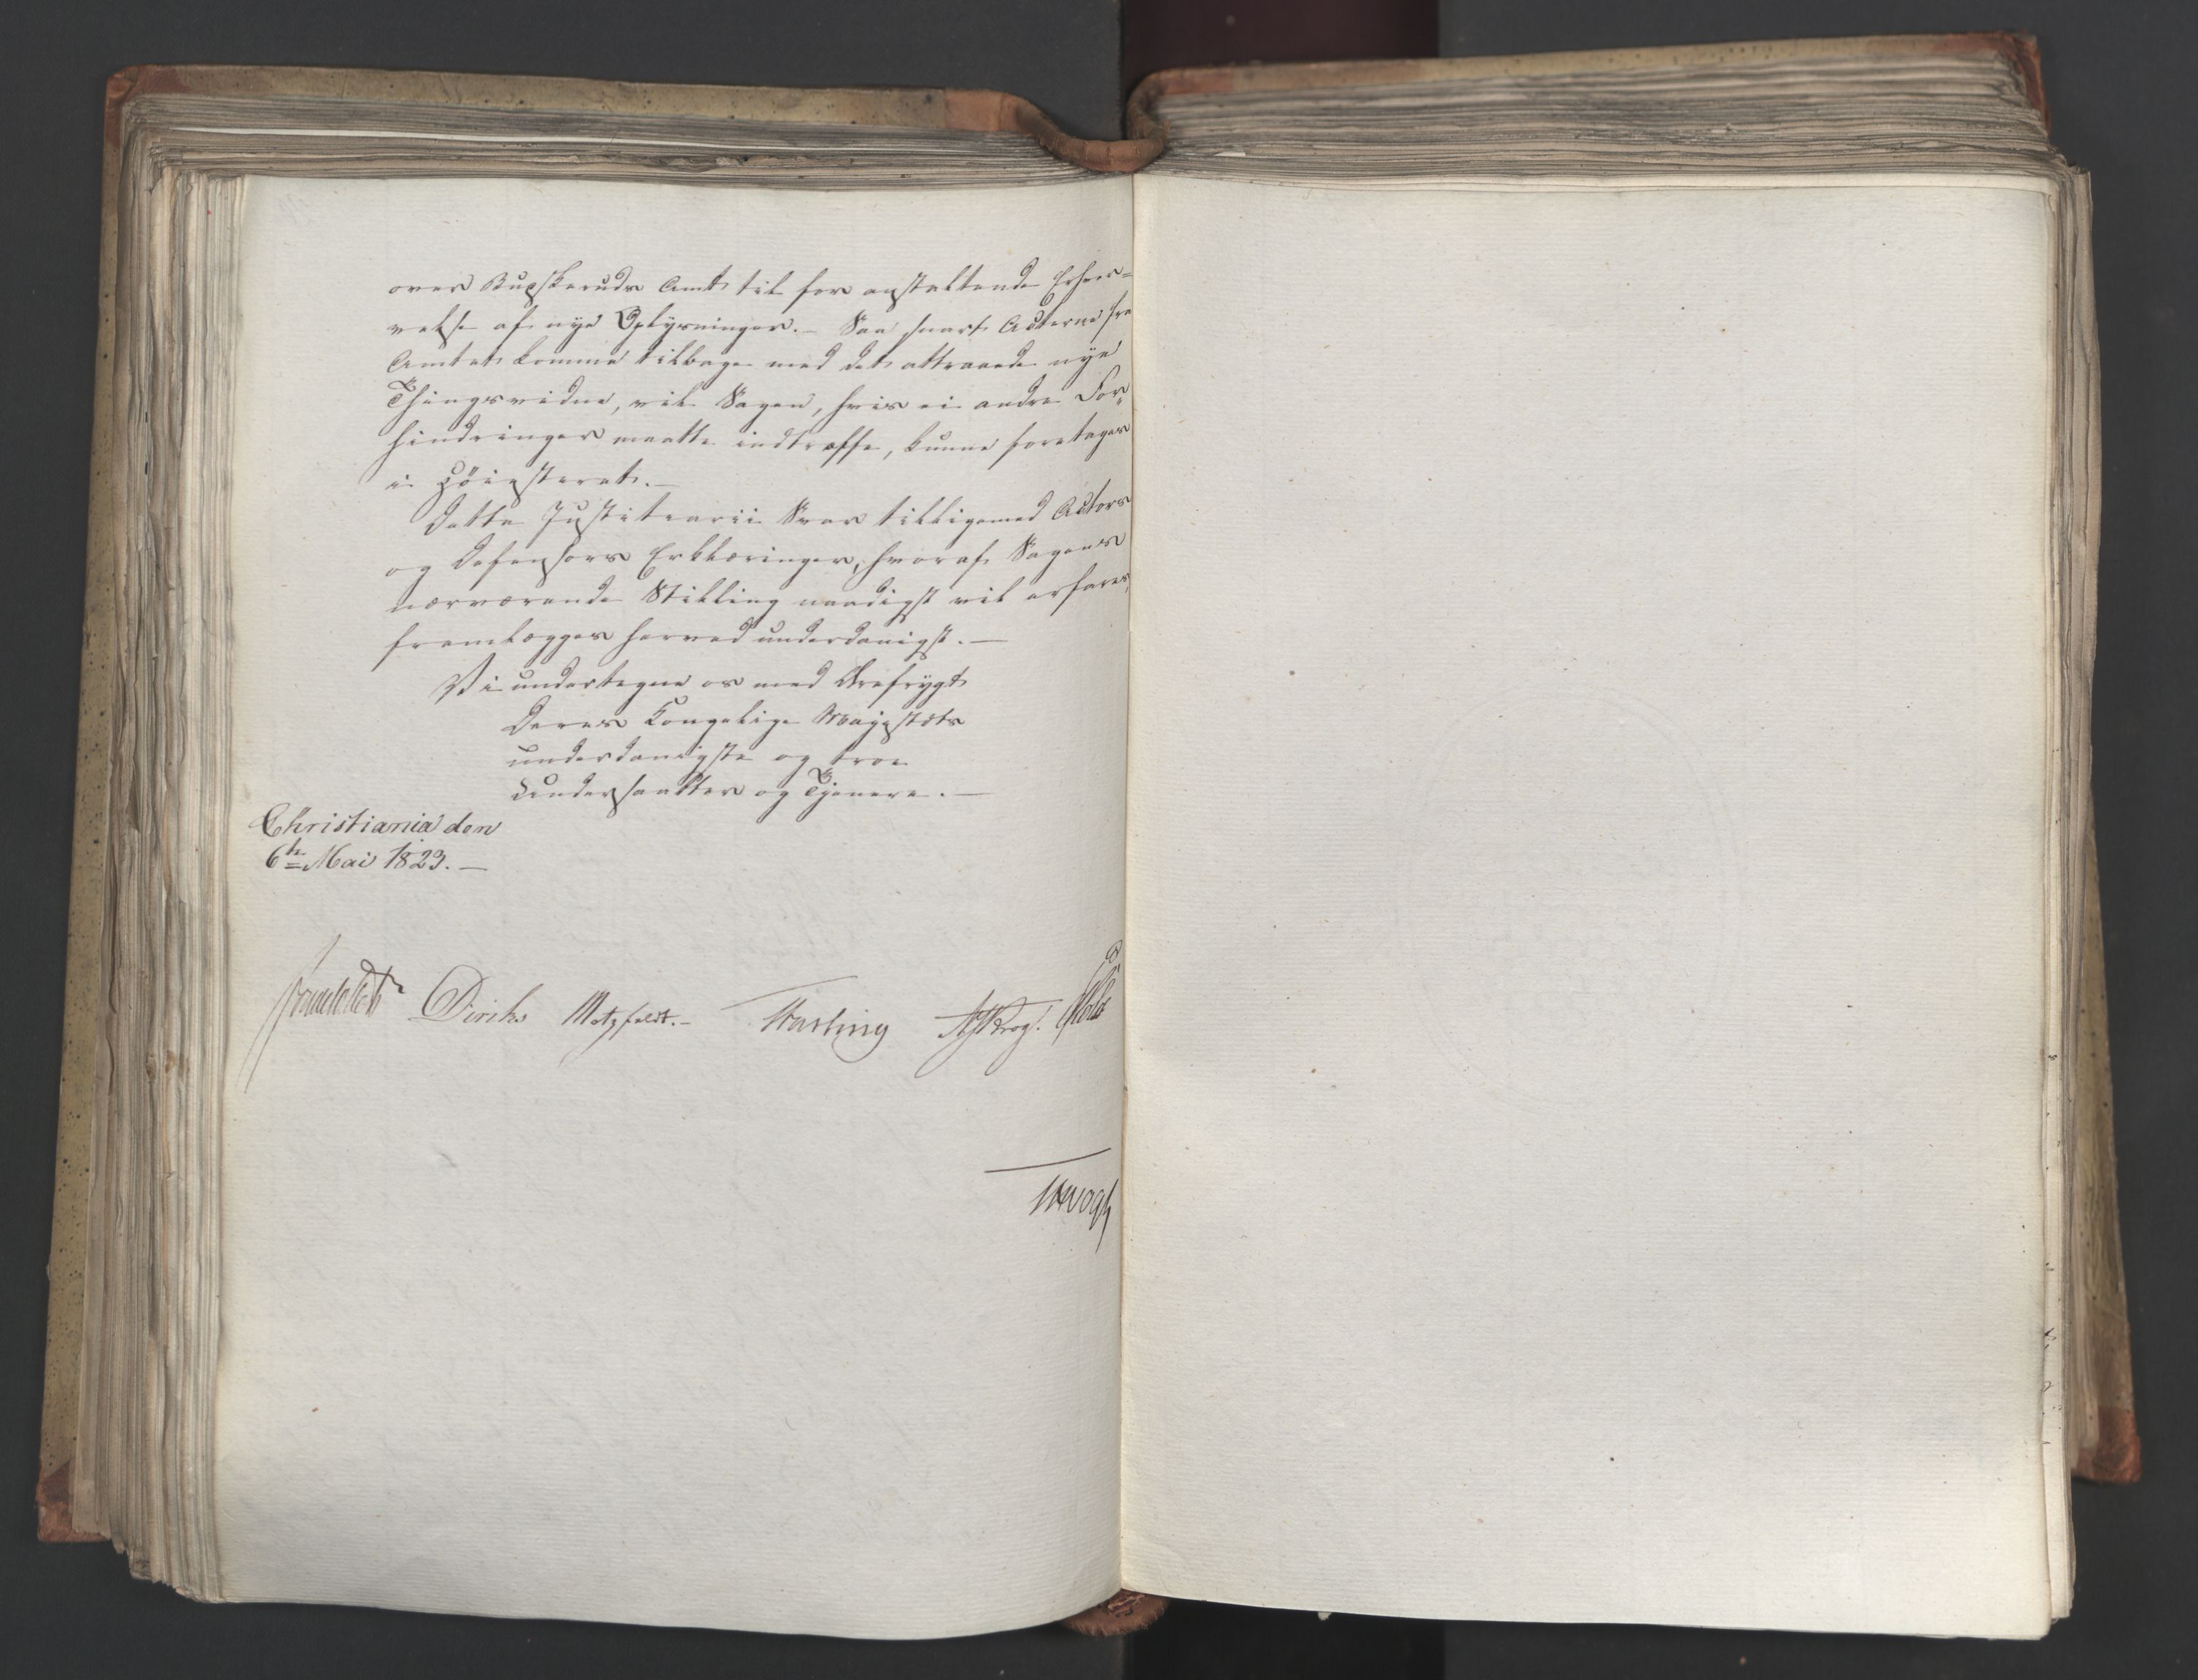 over Buskeruds Amt til foranstaltende Erher-
velse af nye Oplysninger.– Saa snart Acterne fra
Amtet komme tilbage med det attraaede nye
Thingsvidne, vil Sagen, hvis ei andre For-
hindringer maatte indtræffe, kunne foretages
i Höiesteret.–
Dette Justitiarii Svar tilligemed Actors
og Defensors Erklæringer, hvoraf Sagens
nærværende Stilling naadigst vil erfares,
fremlægges herved underdanigst.–
Vi undertegne os med Ærefrygt
Deres Kongelige Majestæts
underdanigste og troe
Undersaatter og Tjenere.–
Christiania den
6te Mai 1823.–
Diriks Motzfeldt.– Krog Holst
Vogt